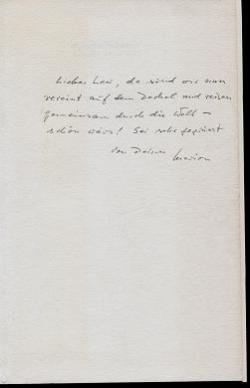 Lieber Lew, da sind wir nun
vereint auf dem Deckel und reisen
gemeinsam durch die Welt –
schön wärs! Sei sehr gegrüsst
von Deiner Marion